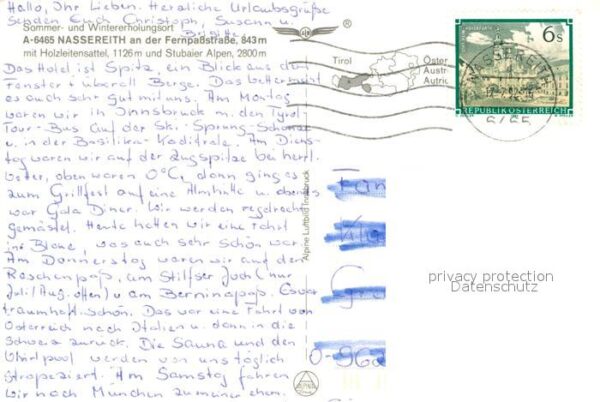 Hallo, Ihr Lieben. Herzliche Urlaubsgrüße
Senden Euch Christoph, Susann u.
Brigitte
Sommer- und Wintererholungsort
A-6465 NASSEREITH an der Fernpaßstraße, 843 m
mit Holzleitensattel, 1126 m und Stubaier Alpen, 2800 m
Tirol
6s
REPUBLIK ÖSTERREICH
Das Hotel ist Spitz, ein Blick aus dem
Fenster + überall Berge. Das Wetter meint
es auch sehr gut mit uns. Am Montag
waren wir in Innsbruck m. den Tyrol-
Tour-Bus auf der Ski-Sprung-Schanze
u. in der Basilika-Kaditrale. Am Diens-
tag waren wir auf der Zugspitze bei herrl.
Wetter, oben waren 0°C, dann ging es
zum Grillfest auf eine Almhütte u. abends
war Gala Diner. Wir werden regelrecht
gemästet. Heute hatten wir eine Fahrt
ins Blaue, was auch sehr schön war.
Am Donnerstag waren wir auf der
Reschenpaß, am Stilfser Joch (nur
Juli/Aug. offen) u. am Berninapaß. Es war
traumhaft schön. Das war eine Fahrt von
Österreich nach Italien u. dann in die
Schweiz zurück. Die Sauna und den
Whirlpool werden von uns täglich
strapeziert. Am Samstag fahren
wir nach München zu
Alpine Luftbild Innsbruck
O-962
privacy protection
Datenschutz